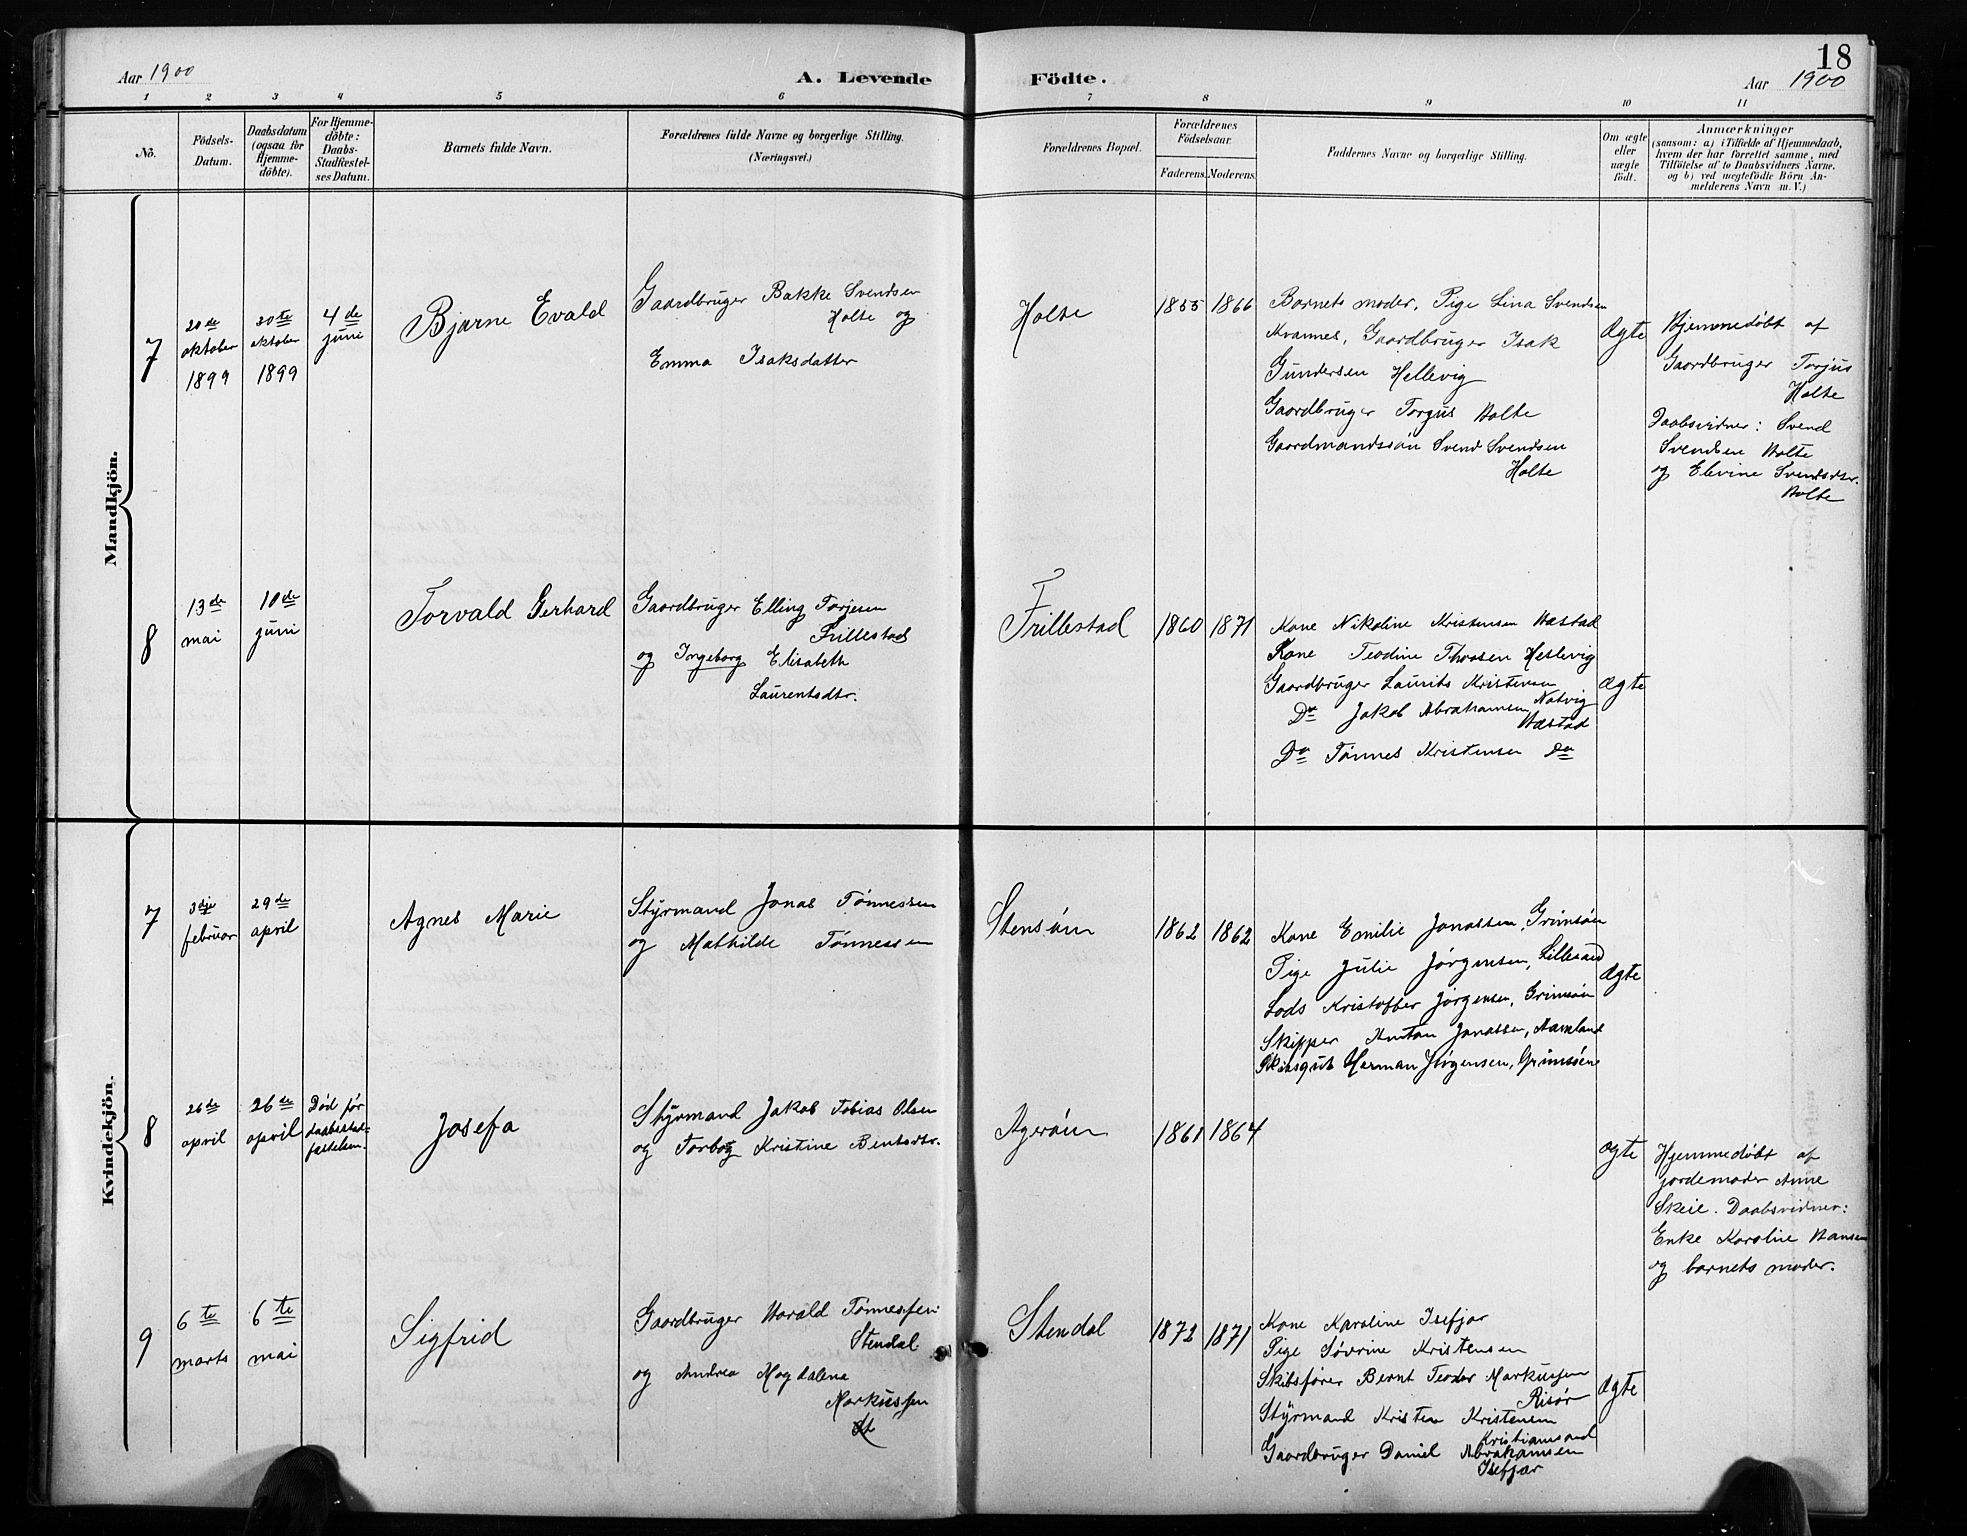 18
Aar 1900
A. Levende
Födte.
Aar 1900
1 2 3 4 5 6 7 8 9 10 11
No.
Födsels-
Datum.
Daabsdatum
(ogsaa for
Hjemme-
döbte).
For Hjemme-
döbte:
Daabs-
Stadfæstel-
ses Datum.
Barnets fulde Navn.
Forældrenes fulde Navne og borgerlige Stilling.
(Næringsvei.)
Forældrenes Bopæl.
Forældrenes
Födselsaar.
Faderens. Moderens.
Faddernes Navne og borgerlige Stilling.
Om ægte
eller
uægte
födt.
Anmærkninger
(saasom: a) i Tilfælde af Hjemmedaab,
hvem der har forrettet samme, med
Tilföielse af to Daabsvidners Navne,
og b) ved uægtefödte Börn An-
melderens Navn m. V.)
Mandkjön.
7
20de
oktober
1899
30te
oktober
1899
4de
juni
Bjarne Evald
Gaardbruger Bakke Svendsen
Holte og
Emma Isaksdatter
Holte
1855 1866
Barnets moder, Pige Lina Svendsen
Kvannes, Gaardbruger Isak
Gundersen Hellevig
Gaardbruger Torjus Holte
Gaardmandssøn Svend Svendsen
Holte
Ægte
Hjemmedøbt af
Gaardbruger Torjus
Holte
Daabsvidner: Svend
Svendsen Holte
og Elevine Svendsdtr.
Holte
8
13de
mai
10de
juni
Torvald Gerhard
Gaardbruger Elling Torjesen
Frillestad
og Ingeborg Elisabeth
Laurentsdtr.
Frillestad
1860 1871
Kone Nikoline Kristensen Hæstad
Kone Teodine Thorsen Hellevig
Gaardbruger Laurits Kristensen
Natvig
Do Jakob Abrahamsen
Hæstad
Do Tønnes Kristensen do
Ægte
Kvindekjön.
7
3dje
februar
29de
april
Agnes Marie
Styrmand Jonas Tønnessen
og Mathilde Tønnessen
Stensøen
1862 1862
Kone Emilie Jonassen, Grimsøen
Pige Julie Jørgensen, Lillesand
Lods Kristoffer Jørgensen, Grimsøen
Skipper Anton Jonassen, Aamland
Skibsgut Herman Jørgensen, Grimsøen
Ægte
8
26de
april
26de
april
Død før
daabsstad-
fæstelsen.
Josefa
Styrmand Jakob Tobias Olsen
og Torborg Kristine Bentsdtr.
Agerøen
1861 1864
Ægte
Hjemmedøbt af
jordemoder Anne
Skeie. Daabsvidner:
Enke Karoline Hansen
og barnets moder.
9
6te
marts
6te
mai
Sigfrid
Gaardbruger Harald Tønnessen
Stendal
og Andrea Magdalena
Markussen
Stendal
1872 1871
Kone Karoline Isefjær
Pige Søvrine Kristensen
Skibsfører Bernt Teodor Markussen
Risør
Styrmand Kristen Kristensen
Kristiansand
Gaardbruger Daniel Abrahamsen
Isefjær
Ægte